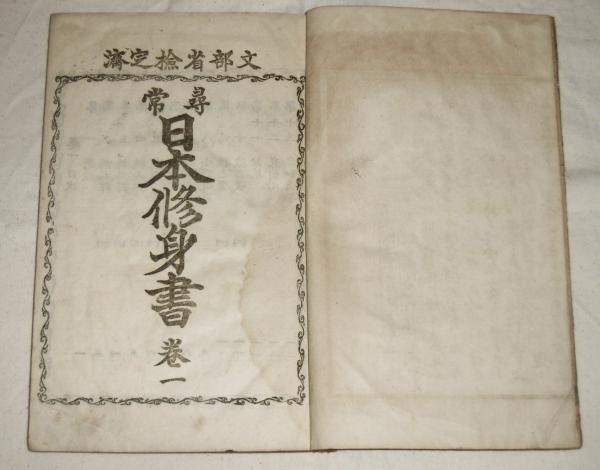 文部省検定濟
尋常
日本修身書
巻一